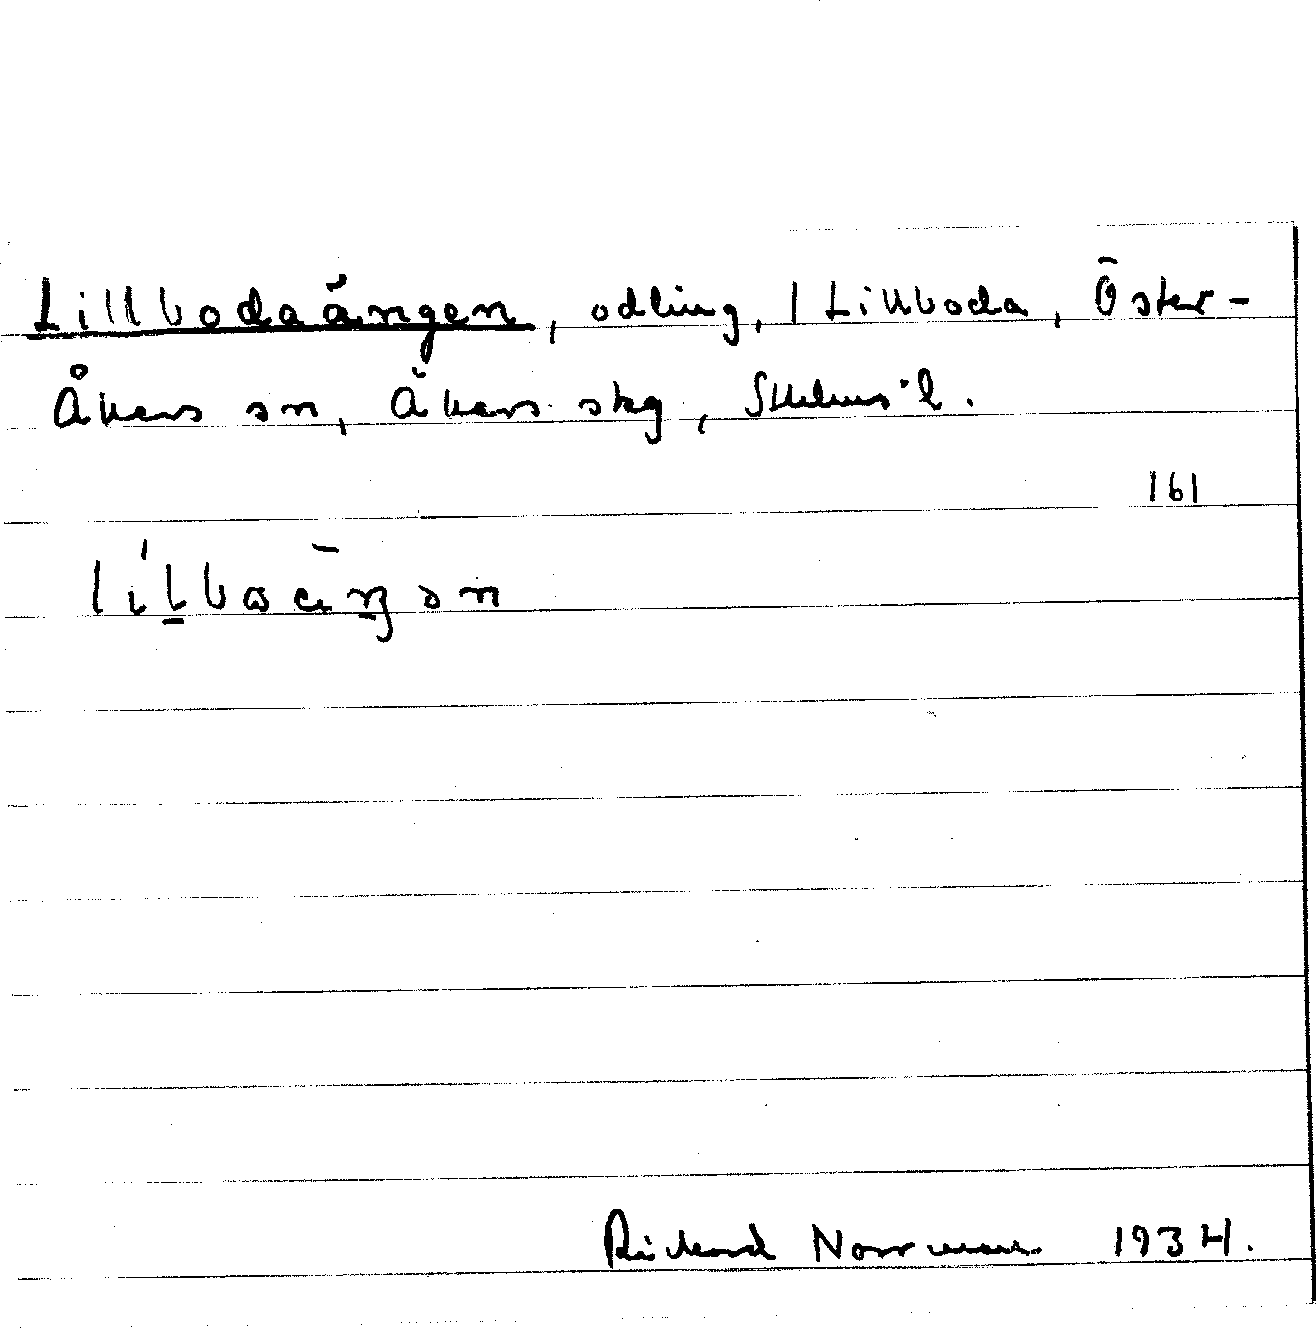 Lillbodaängen, odling, 1 Lillboda, Öster-
Åkers sn, Åkers skg, Sthlms l.
161
Rickard Norrman 1934.